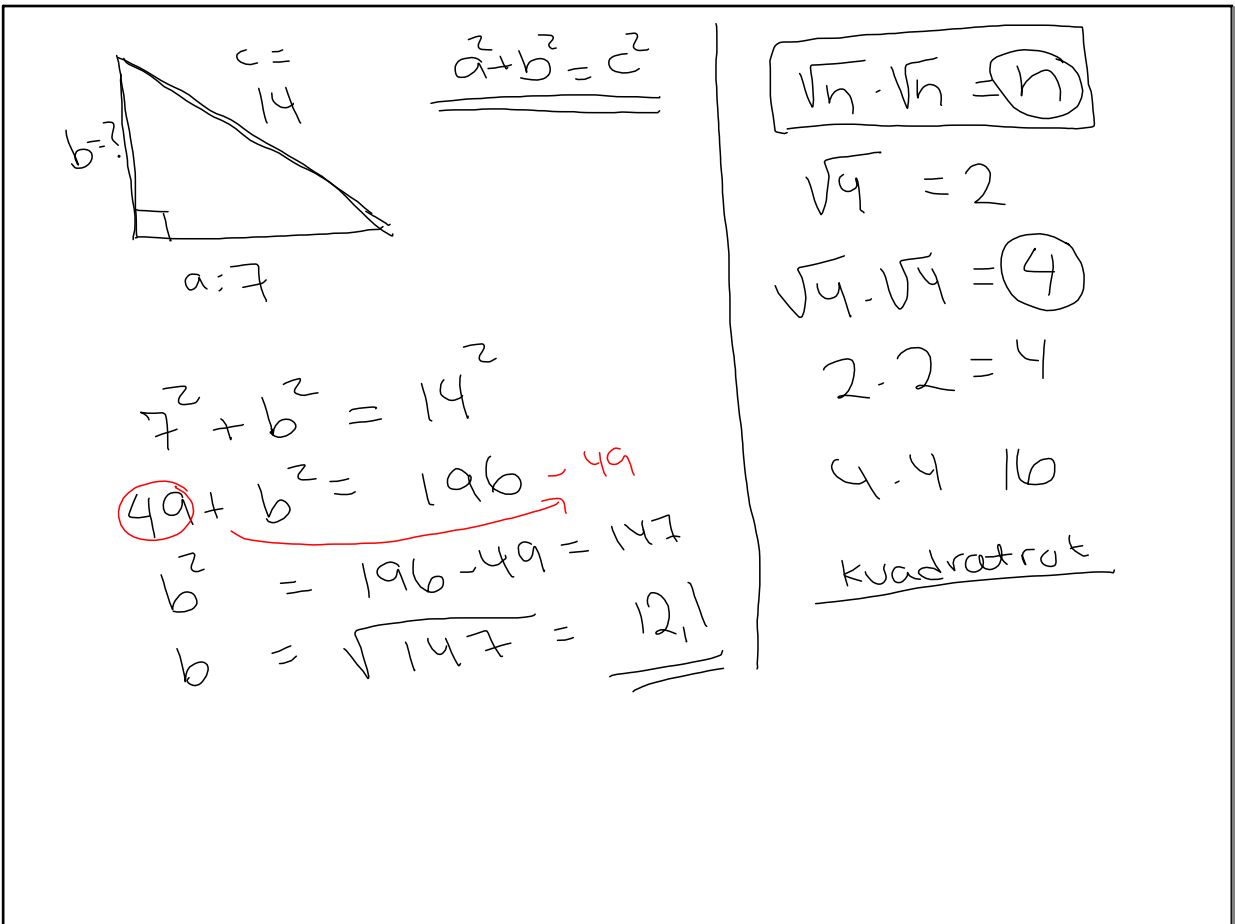 c =
14
b=?
a:7
a²+b²=c²
7² + b² = 14²
49 + b² = 196 - 49
b² = 196-49 = 147
b = √147 = 12,1
√n · √n = n
√4 = 2
√4 · √4 = 4
2 · 2 = 4
4 · 4 16
kvadratrot